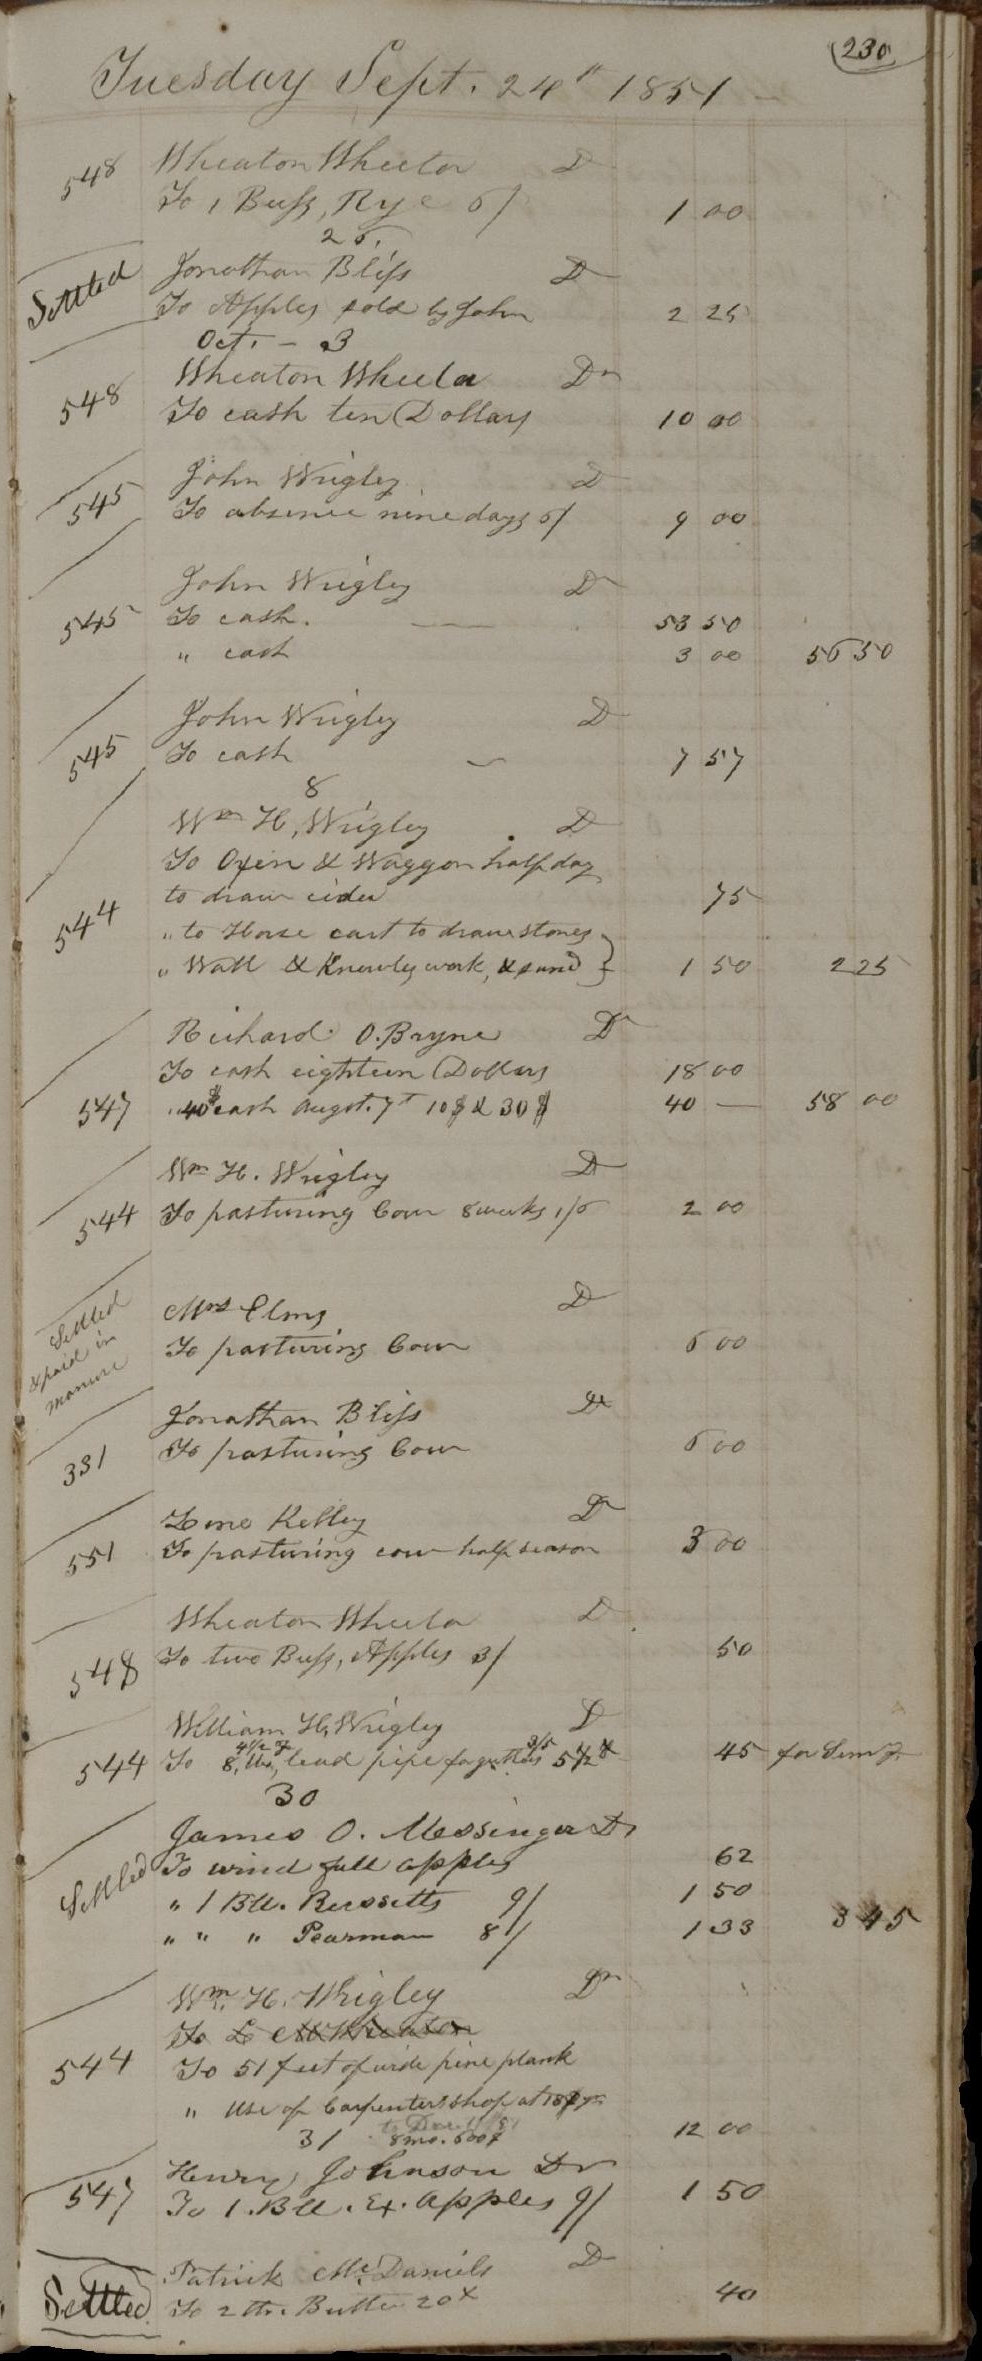 230
Tuesday Sept. 24th 1851
548 Wheaton Wheeler D
To 1 Bush, Rye 6/ 1 00
25,
Settled Jonathan Bliss D
To Apples sold by John 2 25
Oct. - 3
548 Wheaton Wheeler Dr
To cash ten Dollars 10 00
545 John Wrigley D
To absence nine days 6/ 9 00
545 John Wrigley D
To cash. 53 50
" cash 3 00 56 50
545 John Wrigley D
To cash 7 57
8
Wm H, Wrigley D
To Oxen & Waggon half day
to draw cider 75
544 " to Horse cart to draw stones
" Wall & Knowles work, & sand } 1 50 2 25
Richard O. Bryne Dr
To cash eighteen Dollars 18 00
547 40$ cash August. 7th 10$ & 30$ 40 — 58 00
Wm H. Wrigley D
544 To pasturing Cow 8 weeks 1/6 2 00
Settled & paid in manure
Mrs Elms D
To pasturing Cow 6 00
Jonathan Bliss Dr
331 To pasturing Cow 6 00
Kelley Dr
551 To pasturing cow half season 3 00
Wheaton Wheeler D
548 To two Bush, Apples 3/ 50
William H, Wrigley D
544 To 8, lbs, lead pipe for gutters 5 1/2 45
30
James O. Messinger Dr
Settled To wind fall apples 62
" 1 Bll. Russetts 9/ 1 50
" " " Pearman 8/ 1 33 3 45
Wm. H. Wrigley Dr
544 To 51 feet of wide pine plank
" use of Carpenters shop at 18$ yr
8 mo. 12 00
31
Henry Johnson Dr
547 To 1. Bll. Ex. apples 9/ 1 50
Patrick Mc.Daniels D
Settled To 2 lb. Butter 20 40